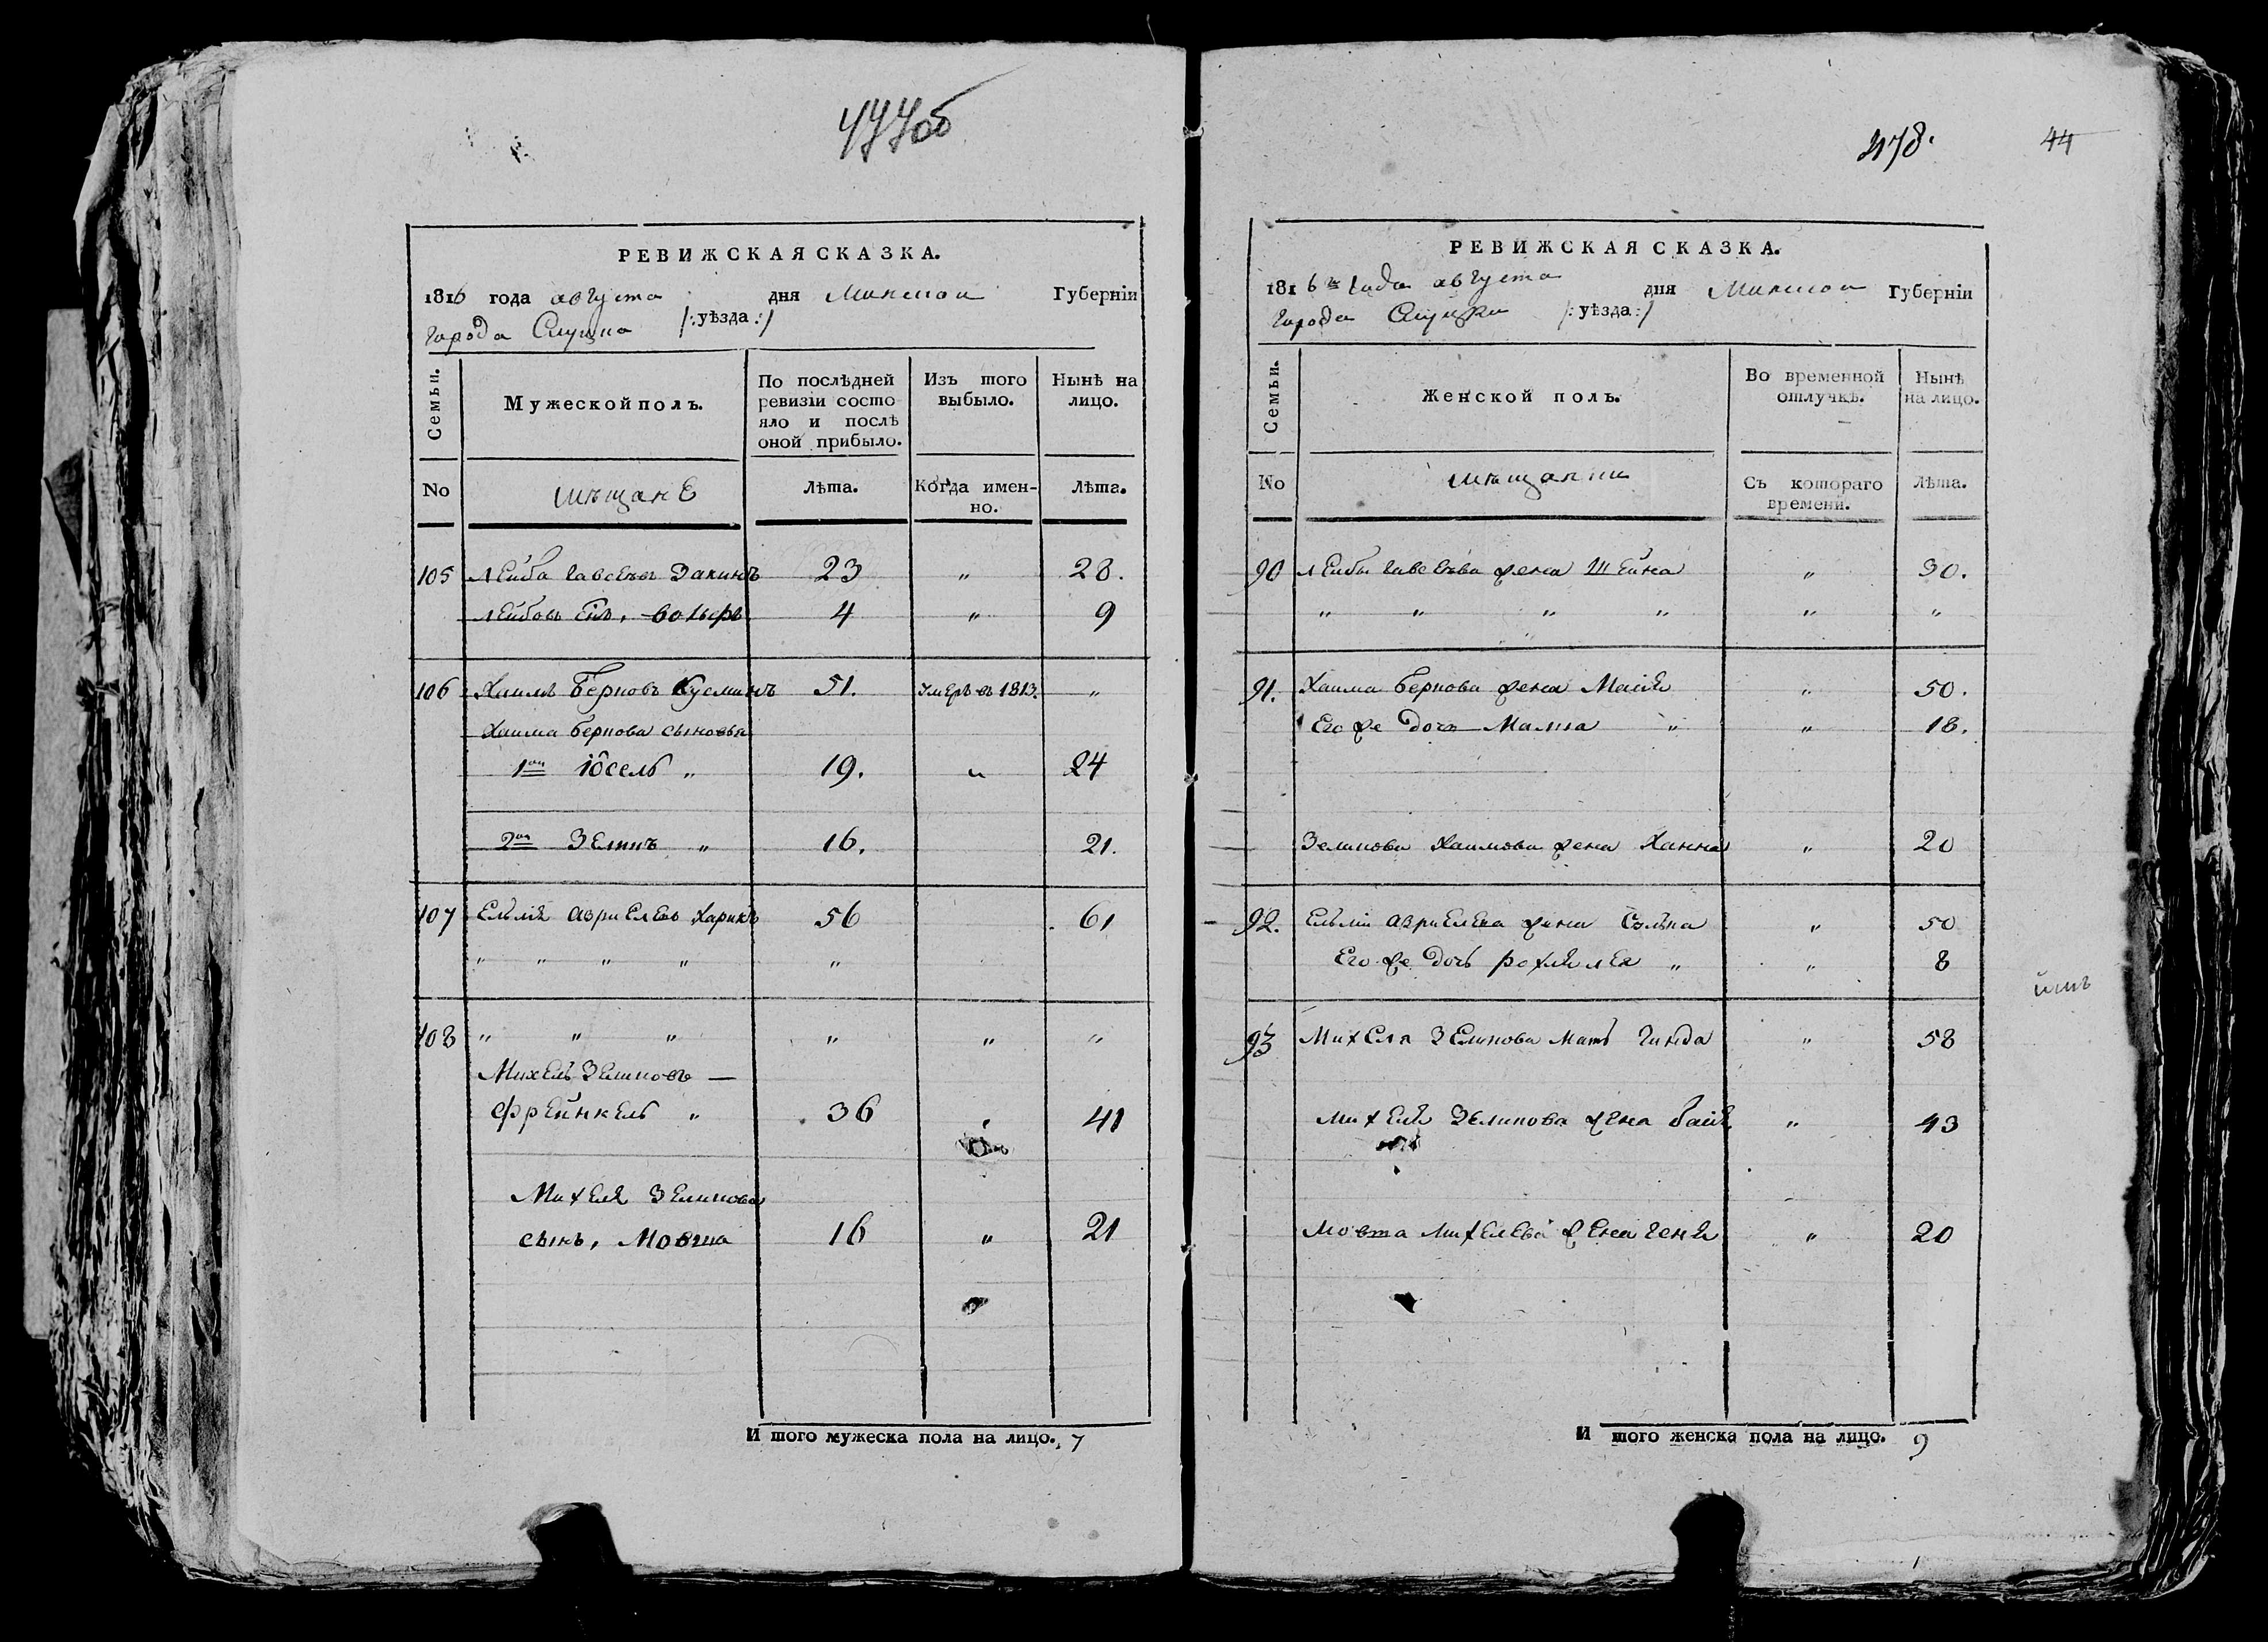 477об
РЕВИЖСКАЯ СКАЗКА.
1816 года августа дня Минской Губерніи
города Слуцка /:уѣзда:/
Семьи.
Мужеской полъ.
По послѣдней ревизіи состояло и послѣ оной прибыло.
Изъ того выбыло.
Нынѣ на лицо.
No
мѣщанЕ
Лѣта.
Когда именно.
Лѣта.
105 Лейба 23 „ 28.
Лейбовъ 4 „ 9
106 Хаимъ Берковъ 51. умеръ въ 1813. „
Хаима Беркова сыновья
1ой Іосель „ 19. „ 24
2ой Зеликъ „ 16. 21.
107 Харикъ 56 61
„ „ „ „ „
108 „ „ „ „ „ „
Михель Зеликовъ —
Френкель „ 36 „ 41
Михеля Зеликова
сынъ, Мовша 16 „ 21
И того мужеска пола на лицо. 7
478. 44
РЕВИЖСКАЯ СКАЗКА.
1816го года августа дня Минской Губерніи
города Слуцка /:уѣзда:/
Семьи.
Женской полъ.
Во временной отлучкѣ.
Нынѣ на лицо.
No
мѣщанки
Съ котораго времени.
Лѣта.
90 Лейбы жена Шейна „ 30.
„ „ „ „ „ „
91. Хаима Беркова жена „ 50.
Его же дочь „ „ 18.
Зеликова Хаимова жена Ханна „ 20
92. жена „ 50
Его же дочь „ „ 8
93 Михеля Зеликова мать Гинда „ 58
Михеля Зеликова жена Бася „ 43
Мовша Михелева жена Геня „ 20
И того женска пола на лицо. 9